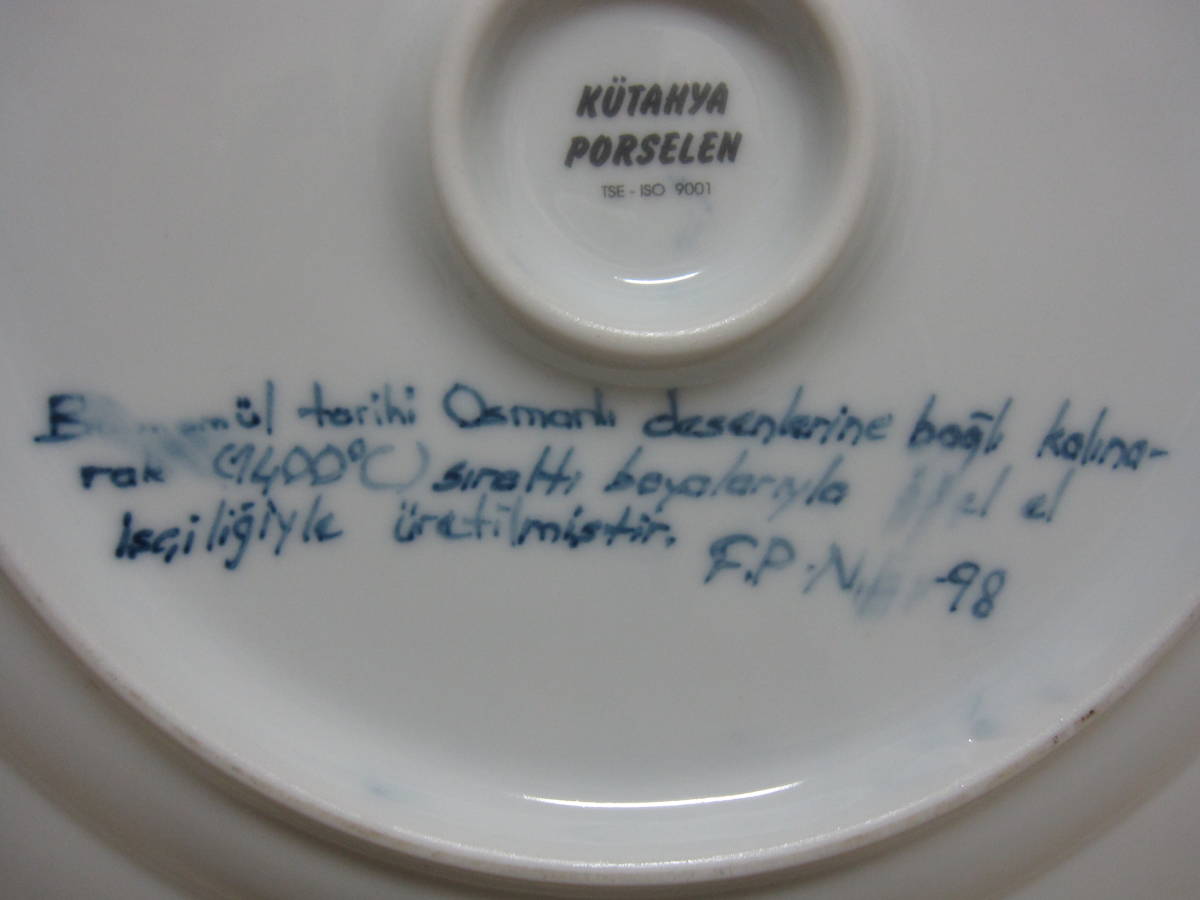 KÜTAHYA
PORSELEN
TSE - ISO 9001
tarihi Osmanlı desenlerine bağlı kalına-
rak (1400°C) sıraltı boyalarıyla el
işçiliğiyle üretilmiştir.
F.P. -98